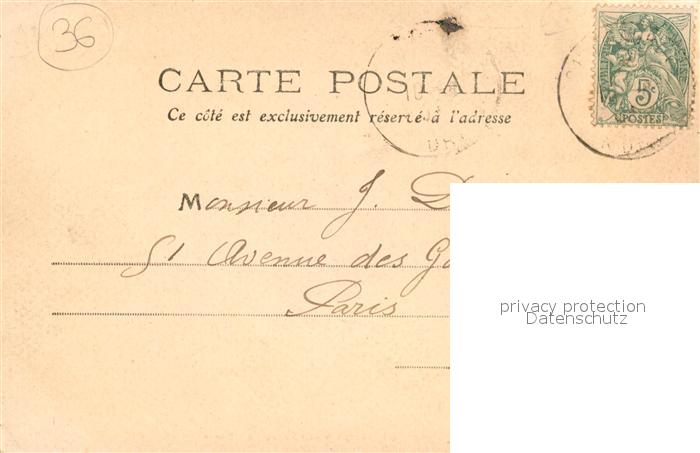 36
CARTE POSTALE
Ce côté est exclusivement réservé à l'adresse
5c
POSTES
Monsieur J. D
51 Avenue des Go
Paris
privacy protection
Datenschutz